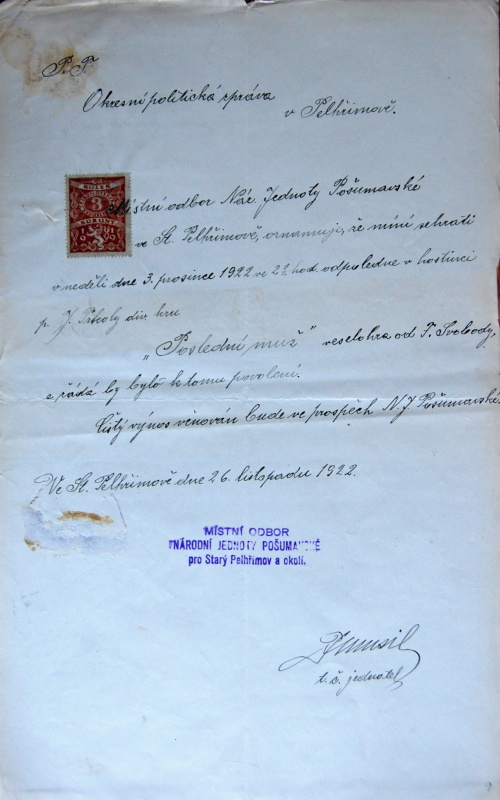 P. T.
Okresní politická správa
v Pelhřimově.
KOLEK
3
KORUNY
Místní odbor Nár. Jednoty Pošumavské
ve St. Pelhřimově, oznamuji, že míní sehráti
v neděli dne 3. prosince 1922 ve hod. odpoledne v hostinci
p. J. div. hru
„Poslední muž" veselohra od F. Svobody,
a žádá by bylo k tomu povolení.
Čistý výnos věnován bude ve prospěch N. J. Pošumavské.
Ve St. Pelhřimově dne 26. listopadu 1922.
MÍSTNÍ ODBOR
NÁRODNÍ JEDNOTY POŠUMAVSKÉ
pro Starý Pelhřimov a okolí.
t. č. jednatel